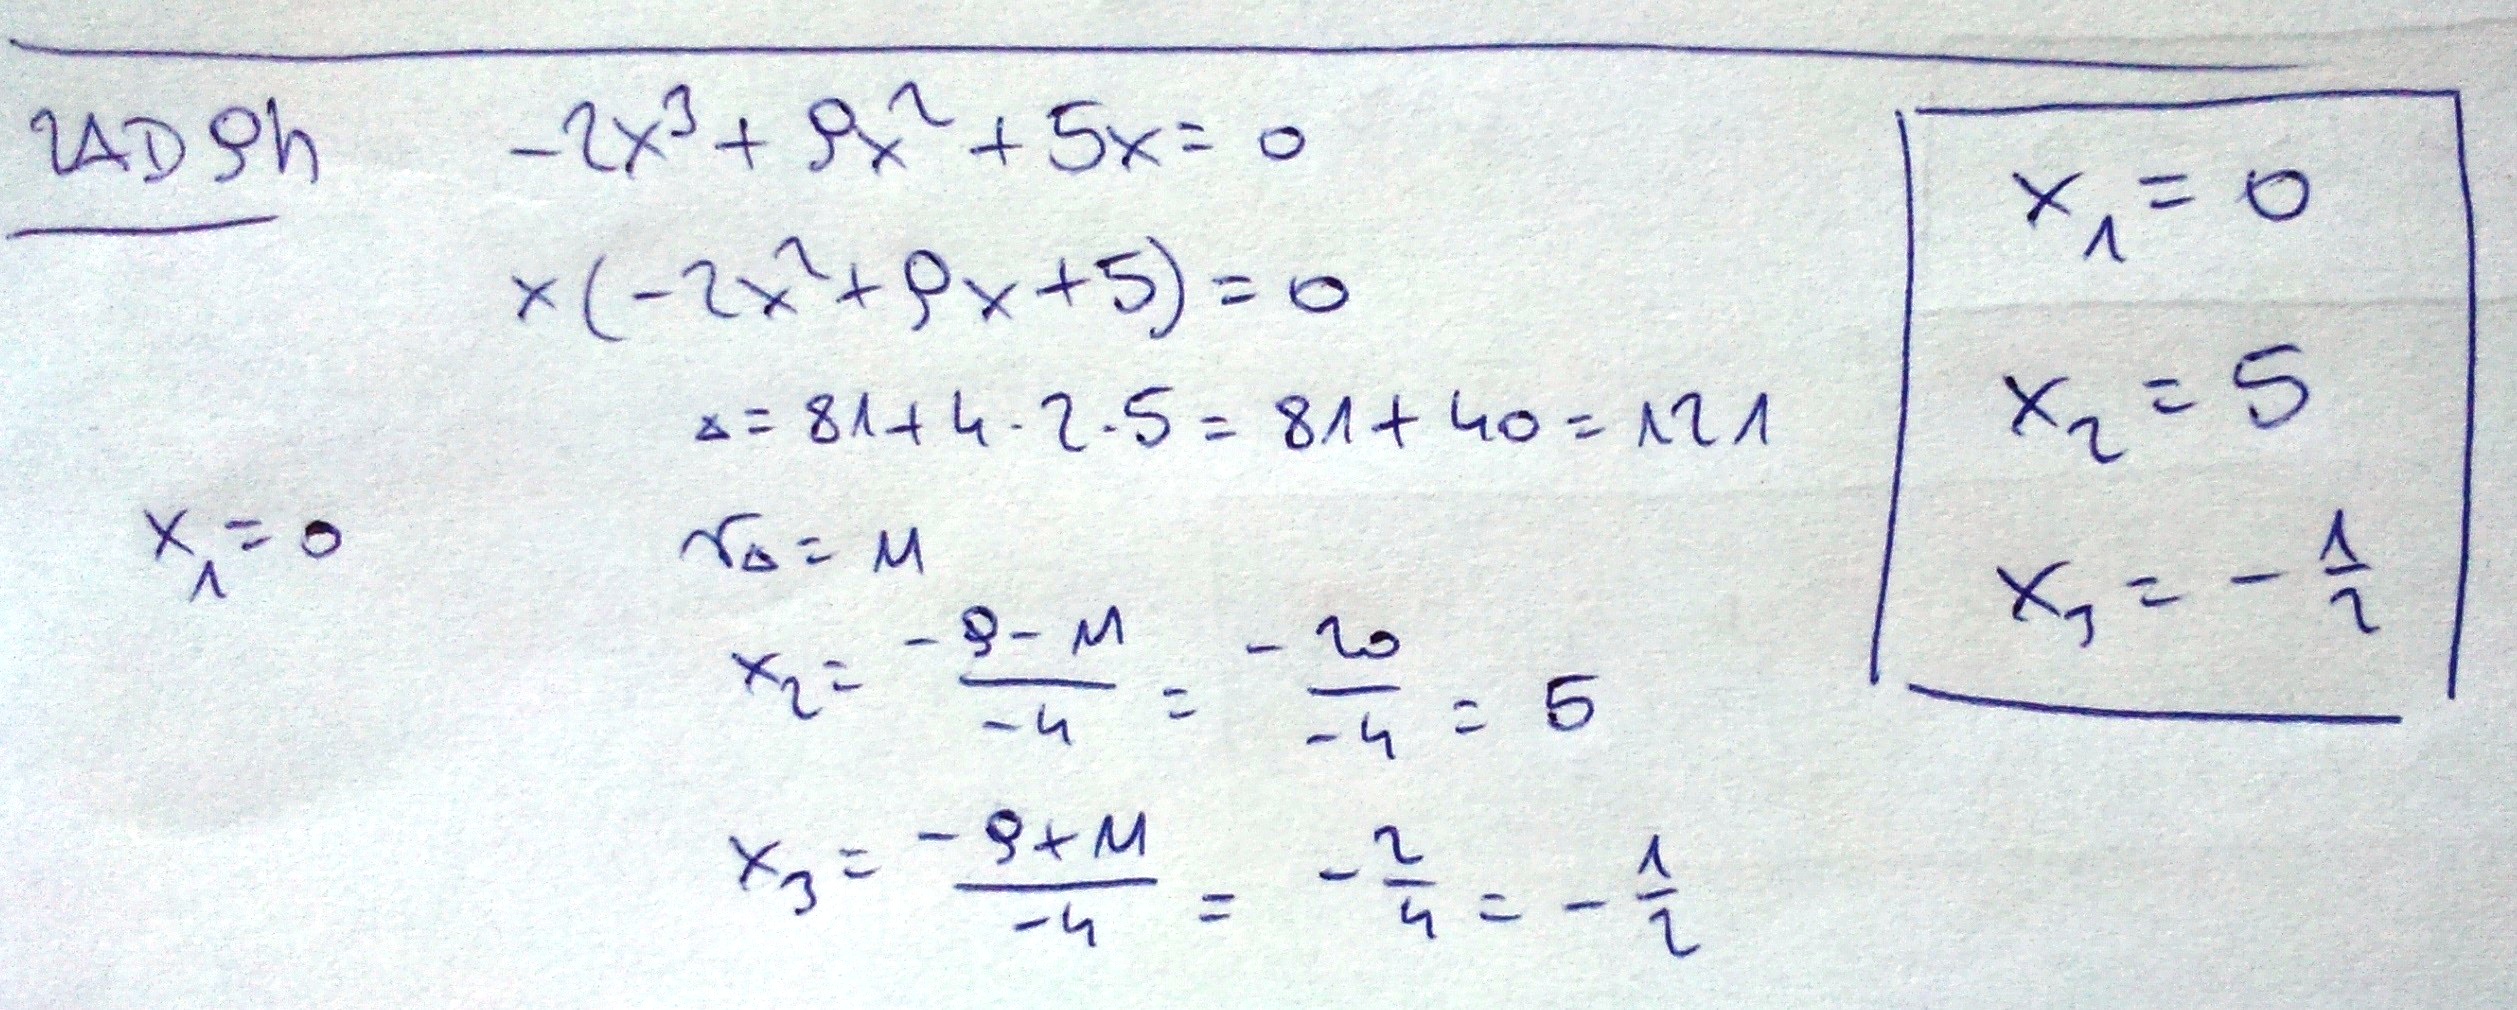 ZAD 9h -2x³ + 9x² + 5x = 0
x(-2x² + 9x + 5) = 0
Δ = 81 + 4 · 2 · 5 = 81 + 40 = 121
x₁ = 0 √Δ = 11
x₂ = (-9 - 11)/(-4) = (-20)/(-4) = 5
x₃ = (-9 + 11)/(-4) = -2/4 = -1/2
x₁ = 0
x₂ = 5
x₃ = -1/2